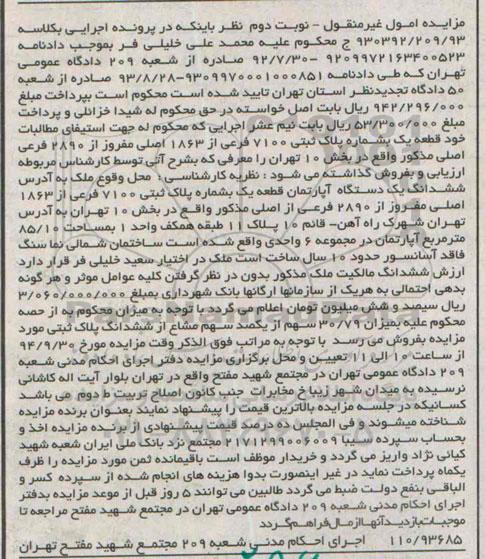 مزایده اموال غیرمنقول - نوبت دوم نظر باینکه در پرونده اجرایی بکلاسه
۹۳۰۳۹۲/۲۰۹/۹۳ ج محکوم علیه محمد علی خلیلی فر بموجب دادنامه
۹۲۰۹۹۷۲۱۶۳۴۰۰۵۲۳ -۹۲/۷/۳۰ صادره از شعبه ۲۰۹ دادگاه عمومی
تهران که طی دادنامه ۹۳۰۹۹۷۰۰۰۱۰۰۰۸۵۱-۹۳/۸/۲۸ صادره از شعبه
۵۰ دادگاه تجدیدنظر استان تهران تایید شده است محکوم است بپرداخت مبلغ
۹۴۲/۲۹۶/۰۰۰ ریال بابت اصل خواسته در حق محکوم له شیدا خزائلی و پرداخت
مبلغ ۵۳/۳۰۰/۰۰۰ ریال بابت نیم عشر اجرایی که محکوم له جهت استیفای مطالبات
خود قطعه یک بشماره پلاک ثبتی ۷۱۰۰ فرعی از ۱۸۶۳ اصلی مفروز از ۲۸۹۰ فرعی
اصلی مذکور واقع در بخش ۱۰ تهران را معرفی که بشرح آتی توسط کارشناس مربوطه
ارزیابی و بفروش گذاشته می شود : نظریه کارشناسی : محل وقوع ملک به آدرس
ششدانگ یک دستگاه آپارتمان قطعه یک بشماره پلاک ثبتی ۷۱۰۰ فرعی از ۱۸۶۳
اصلی مفروز از ۲۸۹۰ فرعی از اصلی مذکور واقع در بخش ۱۰ تهران به آدرس
تهران شهرک راه آهن- قائم ۱۰ پلاک ۱۱ طبقه همکف واحد ۱ بمساحت ۸۵/۱۰
مترمربع آپارتمان در مجموعه ۶ واحدی واقع شده است ساختمان شمالی نما سنگ
فاقد آسانسور حدود ۱۰ سال ساخت است ملک در اختیار سعید خلیلی فر قرار دارد
ارزش ششدانگ مالکیت ملک مذکور بدون در نظر گرفتن کلیه عوامل موثر و هر گونه
بدهی احتمالی به هریک از سازمانها ارگانها بانک شهرداری بمبلغ ۳/۰۶۰/۰۰۰/۰۰۰
ریال سیصد و شش میلیون تومان اعلام می گردد با توجه به میزان محکوم به از حصه
محکوم علیه بمیزان ۳۰/۷۹ سهم از یکصد سهم مشاع از ششدانگ پلاک ثبتی مورد
مزایده بفروش می رسد با توجه به مراتب فوق الذکر وقت مزایده مورخ ۹۴/۹/۳۰
از ساعت ۱۰ الی ۱۱ تعیین و محل برگزاری مزایده دفتر اجرای احکام مدنی شعبه
۲۰۹ دادگاه عمومی تهران در مجتمع شهید مفتح واقع در تهران بلوار آیت اله کاشانی
نرسیده به میدان شهر زیبا خ مخابرات جنب کانون اصلاح تربیت ط دوم می باشد
کسانیکه در جلسه مزایده بالاترین قیمت را پیشنهاد نمایند بعنوان برنده مزایده
شناخته میشوند و فی المجلس ده درصد قیمت پیشنهادی از برنده مزایده اخذ و
بحساب سپرده سیبا ۲۱۷۱۲۹۹۰۰۶۰۰۹ مجتمع نزد بانک ملی ایران شعبه شهید
کیانی نژاد واریز می گردد و خریدار موظف است باقیمانده ثمن مورد مزایده را ظرف
یکماه پرداخت نماید در غیر اینصورت بدوا هزینه های انجام شده از سپرده کسر و
الباقی بنفع دولت ضبط می گردد طالبین می توانند ۵ روز قبل از موعد مزایده بدفتر
اجرای احکام مدنی شعبه ۲۰۹ دادگاه عمومی تهران در مجتمع شهید مفتح مراجعه تا
موجبات بازدید آنها از مال فراهم گردد
۱۱۰/۹۳۶۸۵ اجرای احکام مدنی شعبه ۲۰۹ مجتمع شهید مفتح تهران